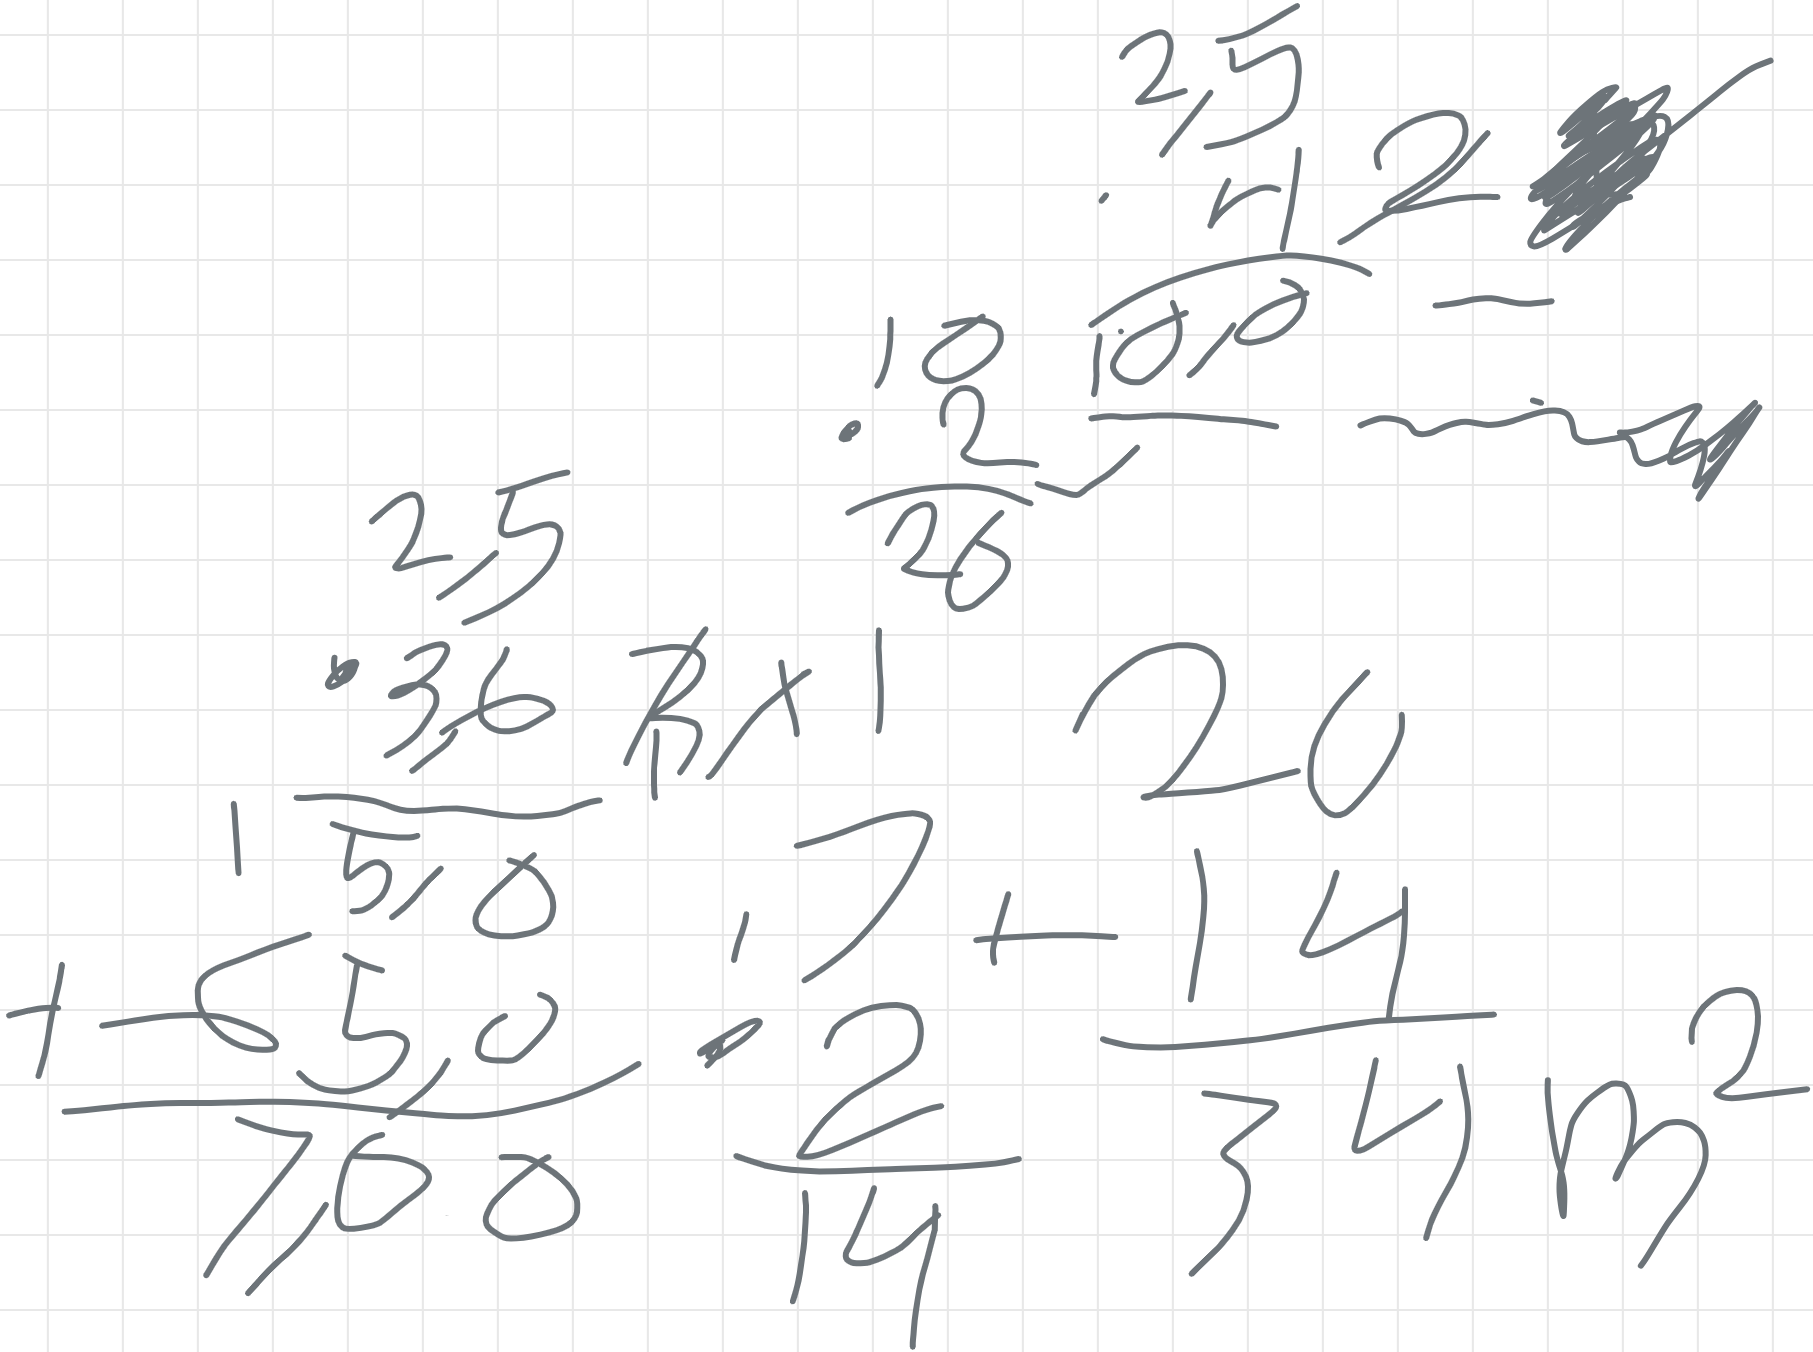 2,5
· 4 2
10,0
10
· 2
20
2,5
· 3,6 R x 1
1 5,0
+ 6 5,0
7,00
7
· 2
14
20
+ 14
34 m²